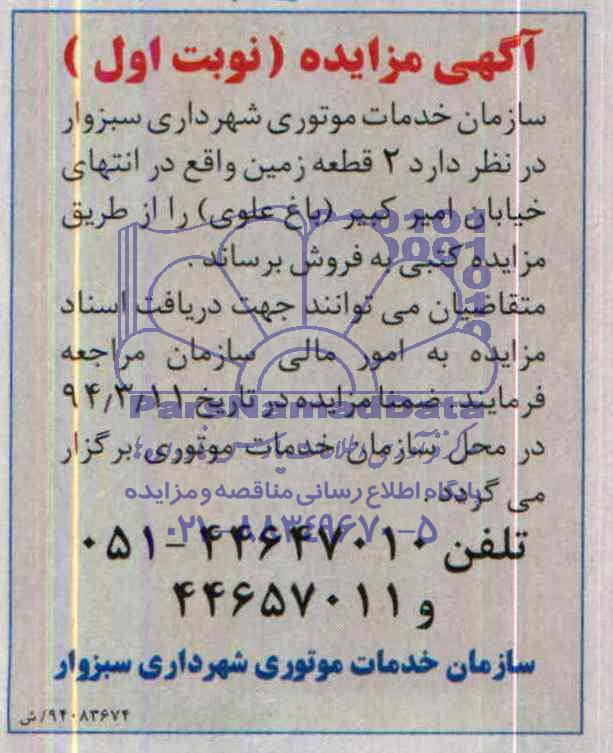 آگهی مزایده (نوبت اول)
سازمان خدمات موتوری شهرداری سبزوار
در نظر دارد ۲ قطعه زمین واقع در انتهای
خیابان امیر کبیر (باغ علوی) را از طریق
مزایده کتبی به فروش برساند.
متقاضیان می توانند جهت دریافت اسناد
مزایده به امور مالی سازمان مراجعه
فرمایند. ضمنا مزایده در تاریخ ۹۴/۳/۱۱
ParsNamadData
در محل سازمان خدمات موتوری برگزار
می گردد.
پایگاه اطلاع رسانی مناقصه و مزایده
۰۲۱-۸۸۳۴۹۶۷۰-۵
تلفن ۴۴۶۴۷۰۱۰-۰۵۱
و ۴۴۶۵۷۰۱۱
سازمان خدمات موتوری شهرداری سبزوار
۹۴۰۸۳۶۷۴/ش